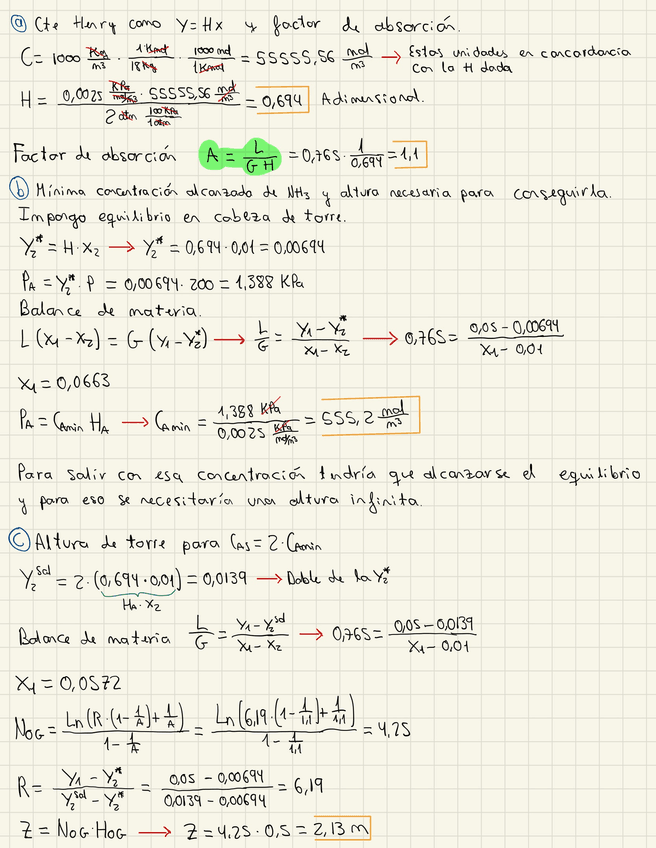 ⓐ Cte Henry como Y=Hx y factor de absorción.
C = 1000 Kg/m3 · 1 Kmol/18 Kg · 1000 mol/1 Kmol = 55555,56 mol/m3 → Estas unidades en concordancia con la H dada
H = (0,0025 KPa/(mol/m3) · 55555,56 mol/m3)/(2 atm 100 KPa/1 atm) = 0,694 Adimensional.
Factor de absorción A = L/(G H) = 0,765 · 1/0,694 = 1,1
ⓑ Mínima concentración alcanzado de NH3 y altura necesaria para conseguirla.
Impongo equilibrio en cabeza de torre.
Y2* = H·X2 → Y2* = 0,694·0,01 = 0,00694
PA = Y2*·P = 0,00694·200 = 1,388 KPa
Balance de materia.
L(x1-x2) = G(y1-y2*) → L/G = (y1-y2*)/(x1-x2) → 0,765 = (0,05-0,00694)/(x1-0,01)
x1 = 0,0663
PA = CAmin HA → CAmin = (1,388 KPa)/(0,0025 KPa/(mol/m3)) = 555,2 mol/m3
Para salir con esa concentración tndría que alcanzarse el equilibrio
y para eso se necesitaría una altura infinita.
ⓒ Altura de torre para CAS = 2·CAmin
Y2sal = 2·(0,694·0,01) = 0,0139 → Doble de la Y2*
HA·X2
Balance de materia L/G = (y1-y2sal)/(x1-x2) → 0,765 = (0,05-0,0139)/(x1-0,01)
X1 = 0,0572
NOG = Ln(R·(1-1/A)+1/A)/(1-1/A) = Ln(6,19·(1-1/1,1)+1/1,1)/(1-1/1,1) = 4,25
R = (Y1-Y2*)/(Y2sal-Y2*) = (0,05-0,00694)/(0,0139-0,00694) = 6,19
Z = NOG·HOG → Z = 4,25·0,5 = 2,13 m